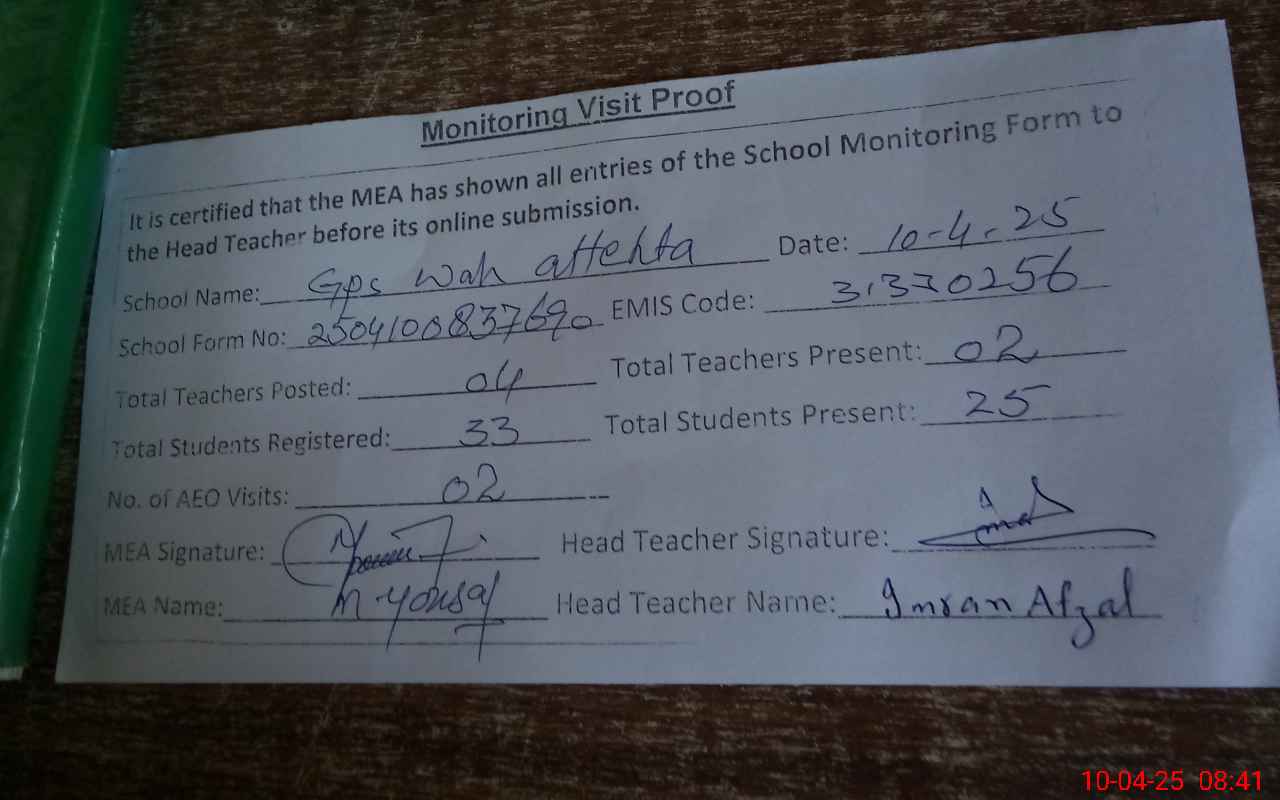 Monitoring Visit Proof
It is certified that the MEA has shown all entries of the School Monitoring Form to
the Head Teacher before its online submission.
School Name: Gps Wah attehta Date: 10-4-25
School Form No: 2504100837690 EMIS Code: 31330256
Total Teachers Posted: 04 Total Teachers Present: 02
Total Students Registered: 33 Total Students Present: 25
No. of AEO Visits: 02
MEA Signature: Head Teacher Signature:
MEA Name: M yousaf Head Teacher Name: Imran Afzal
10-04-25 08:41